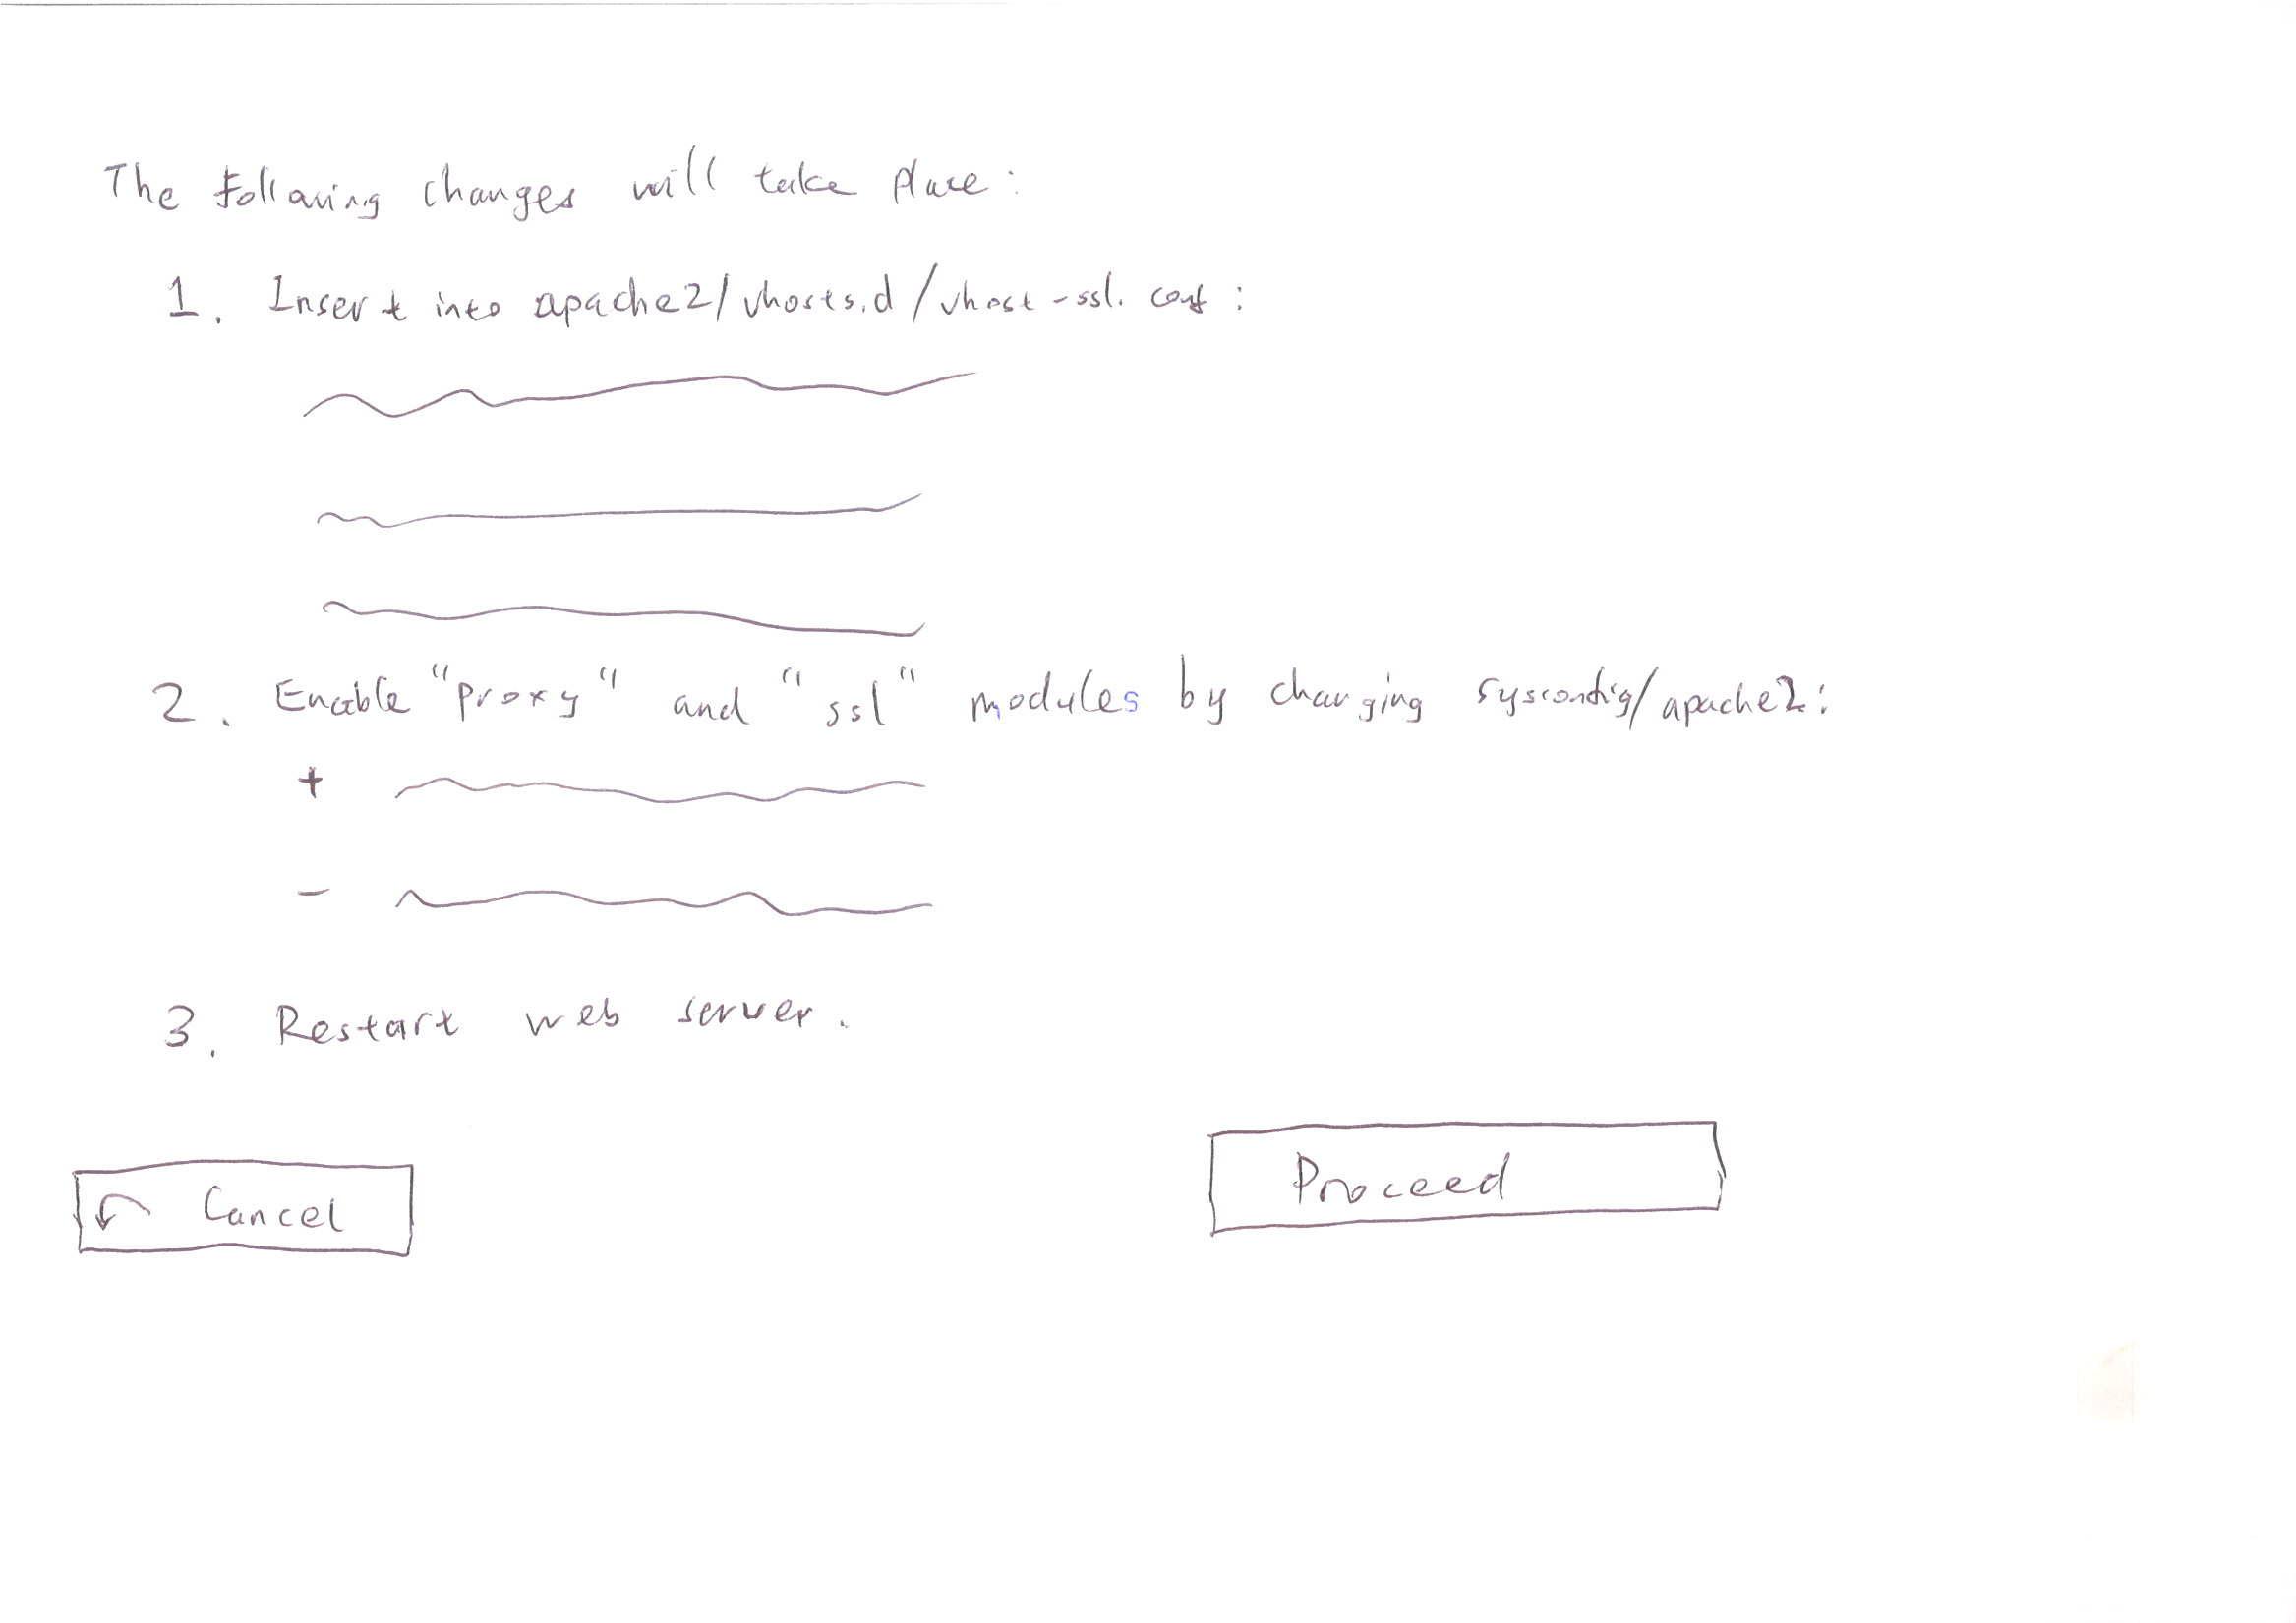 The following changes will take place:
1. Insert into apache2/vhosts.d/vhost-ssl.conf:
2. Enable "proxy" and "ssl" modules by changing sysconfig/apache2:
+
-
3. Restart web server.
Proceed
Cancel